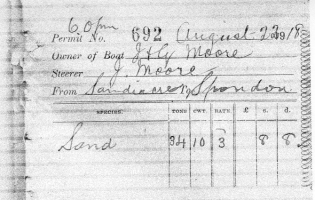 6.0 pm
Permit No. 692 August 22 1918
Owner of Boat J & Hy Moore
Steerer J. Moore
From Sandiacre Spondon
SPECIES. TONS CWT. RATE £ s. d.
Sand 34 10 3 8 8